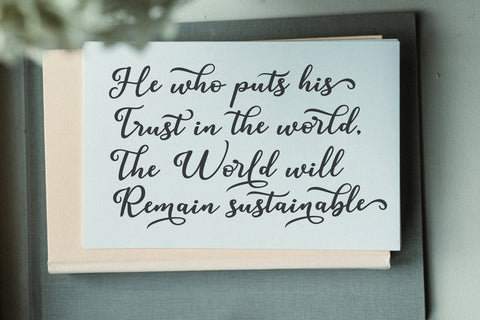 He who puts his
Trust in the world,
The World will
Remain sustainable